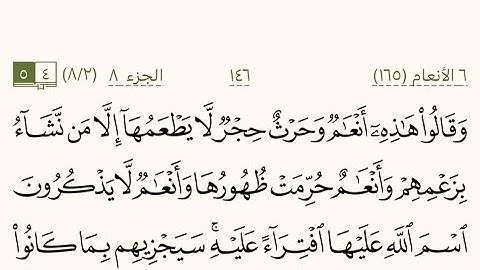 ٦ الأنعام (١٦٥) ١٤٦ الجزء ٨ (٨/٢) ٤ ٥
وَقَالُوا۟ هَـٰذِهِۦٓ أَنْعَـٰمٌ وَحَرْثٌ حِجْرٌ لَّا يَطْعَمُهَآ إِلَّا مَن نَّشَآءُ
بِزَعْمِهِمْ وَأَنْعَـٰمٌ حُرِّمَتْ ظُهُورُهَا وَأَنْعَـٰمٌ لَّا يَذْكُرُونَ
ٱسْمَ ٱللَّهِ عَلَيْهَا ٱفْتِرَآءً عَلَيْهِ ۚ سَيَجْزِيهِم بِمَا كَانُوا۟